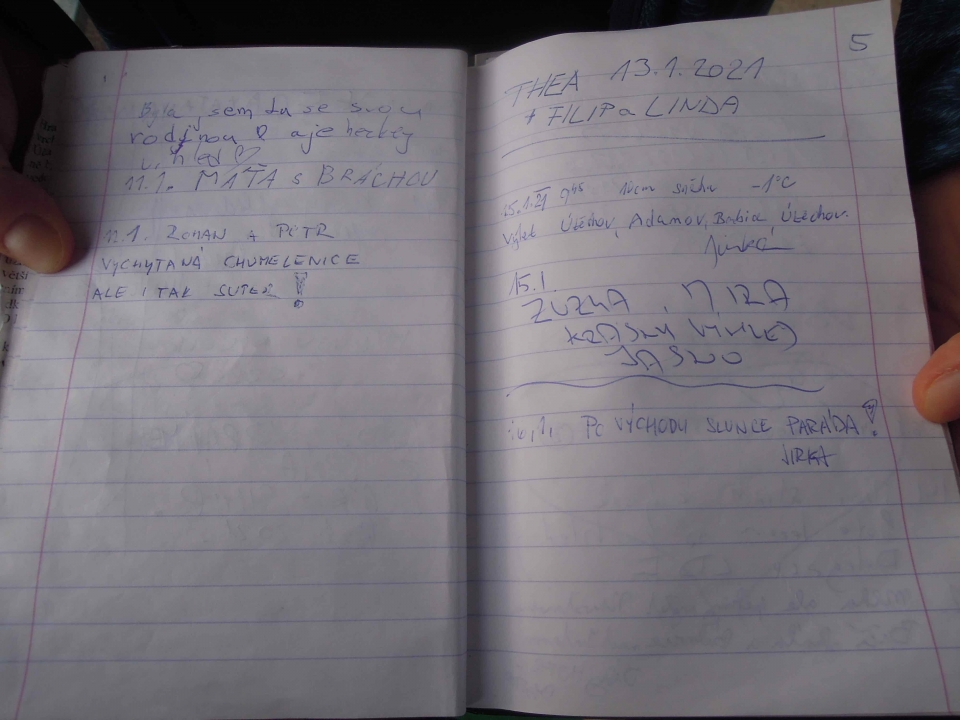 Byla jsem tu se svou
rodinou a je hezký
v hled
11.1. MÁŤA S BRÁCHOU
12.1. ROMAN + PETR
VYCHYTANÁ CHUMELENICE
ALE I TAK SUPER!
5
THEA 13.1.2021
+ FILIP a LINDA
15.1.21 9⁴⁵ 10cm sněhu -1°C
Výlet Útěchov, Adamov, Babice, Útěchov.
15.1.
ZUZKA, MÍRA
KRÁSNÝ VÝHLED
JASNO
PO VÝCHODU SLUNCE PARÁDA!
JIRKA